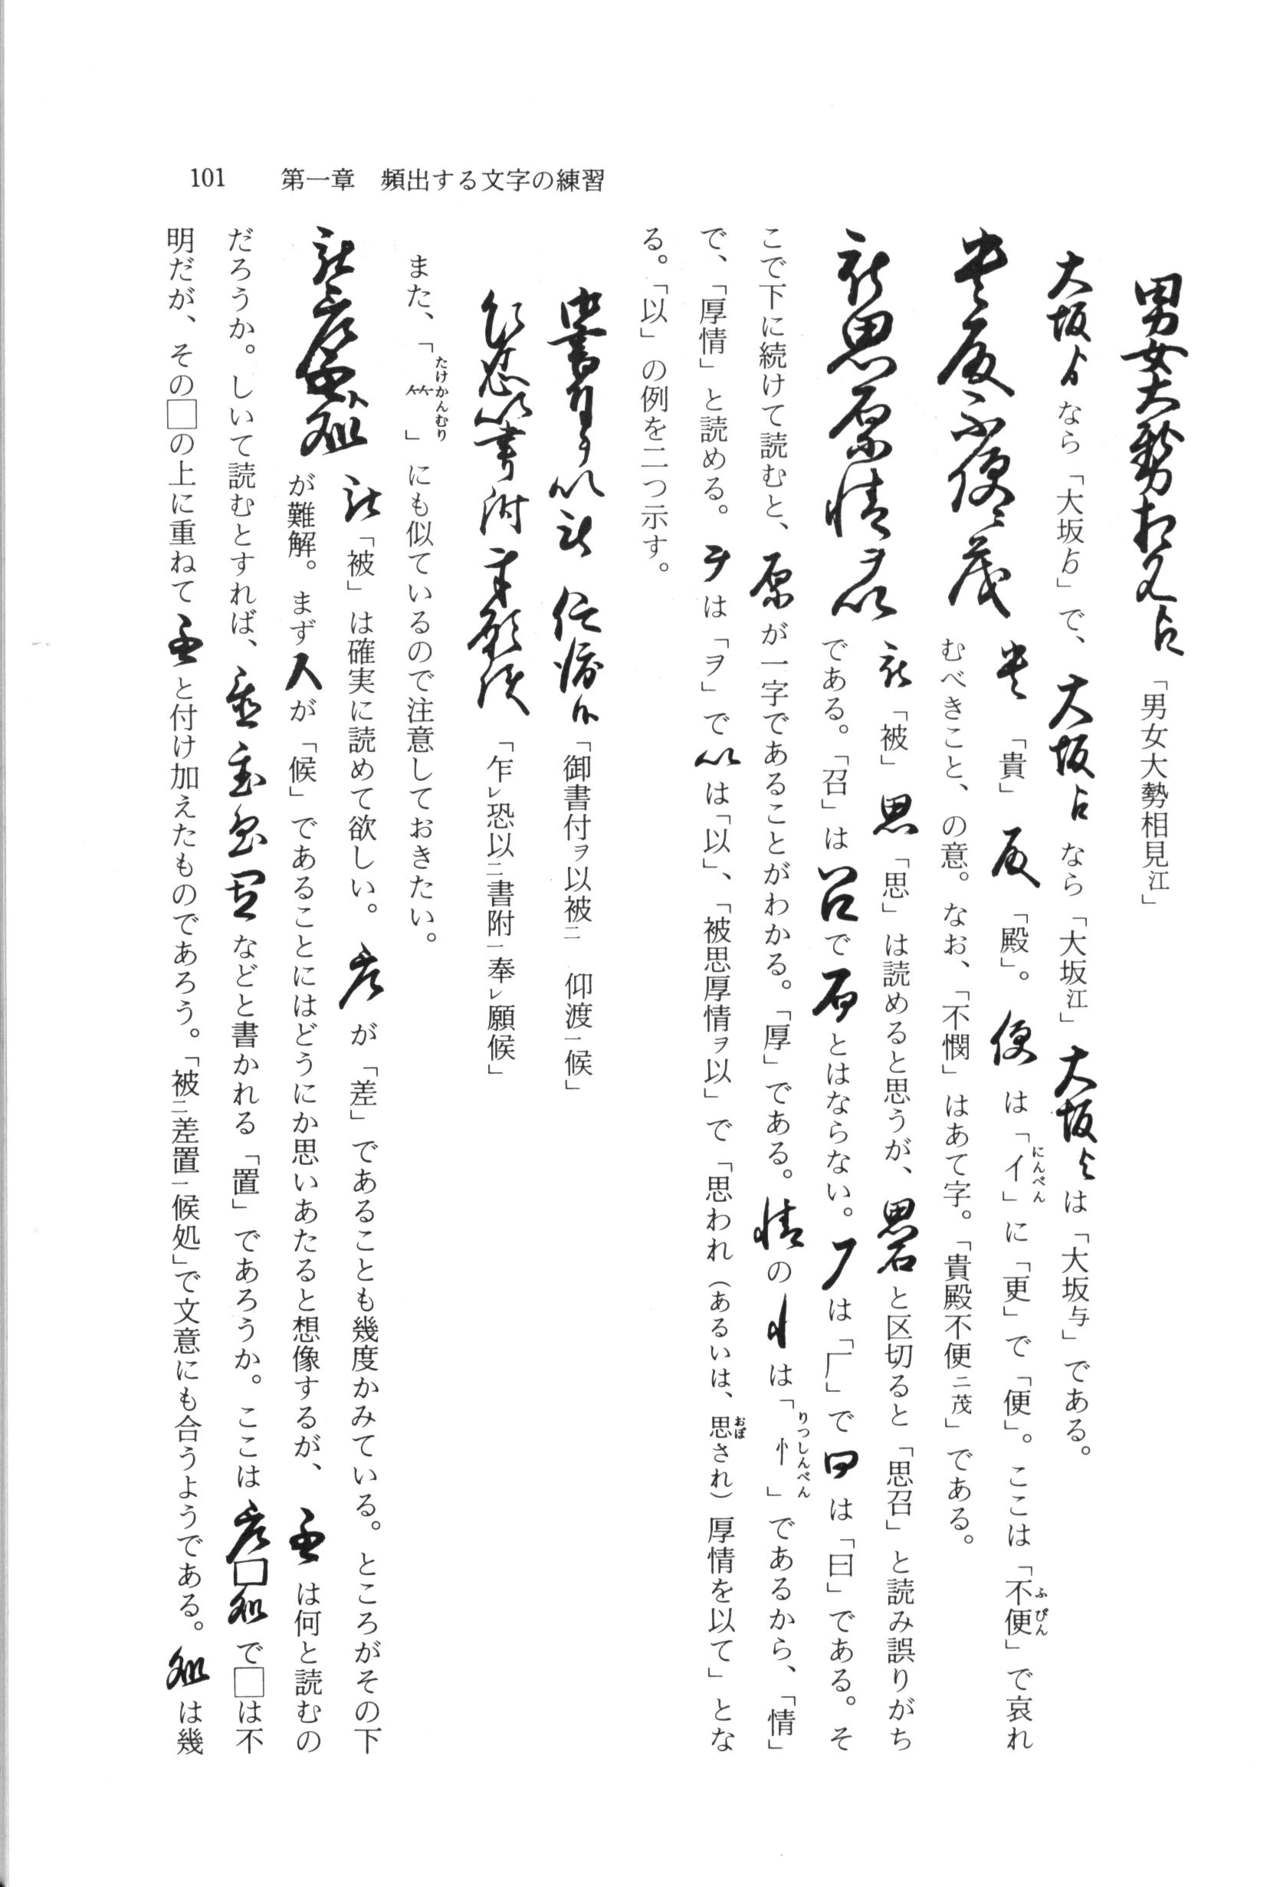 101　第一章　頻出する文字の練習
男女大勢相見江「男女大勢相見江」
大坂ゟなら「大坂ゟ」で、大坂江なら「大坂江」大坂与は「大坂与」である。
貴殿不便ニ茂 貴「貴」殿「殿」。便は「イ(にんべん)」に「更」で「便」。ここは「不便(ふびん)」で哀れ
むべきこと、の意。なお、「不憫」はあて字。「貴殿不便ニ茂」である。
被思厚情ヲ以 被「被」思「思」は読めると思うが、思召と区切ると「思召」と読み誤りがち
である。「召」は召でとはならない。は「厂」で日は「日」である。そ
こで下に続けて読むと、厚が一字であることがわかる。「厚」である。情のは「忄(りっしんべん)」であるから、「情」
で、「厚情」と読める。ヲは「ヲ」で以は「以」、「被思厚情ヲ以」で「思われ（あるいは、思(おぼ)され）厚情を以て」とな
る。「以」の例を二つ示す。
御書付ヲ以被　仰渡候「御書付ヲ以被二　仰渡一候」
乍恐以書附奉願候「乍レ恐以二書附一奉レ願候」
また、「𥫗(たけかんむり)」にも似ているので注意しておきたい。
被差置候処 被「被」は確実に読めて欲しい。差が「差」であることも幾度かみている。ところがその下
が難解。まず候が「候」であることにはどうにか思いあたると想像するが、は何と読むの
だろうか。しいて読むとすれば、置置置置などと書かれる「置」であろうか。ここは差□処で□は不
明だが、その□の上に重ねてと付け加えたものであろう。「被二差置一候処」で文意にも合うようである。処は幾